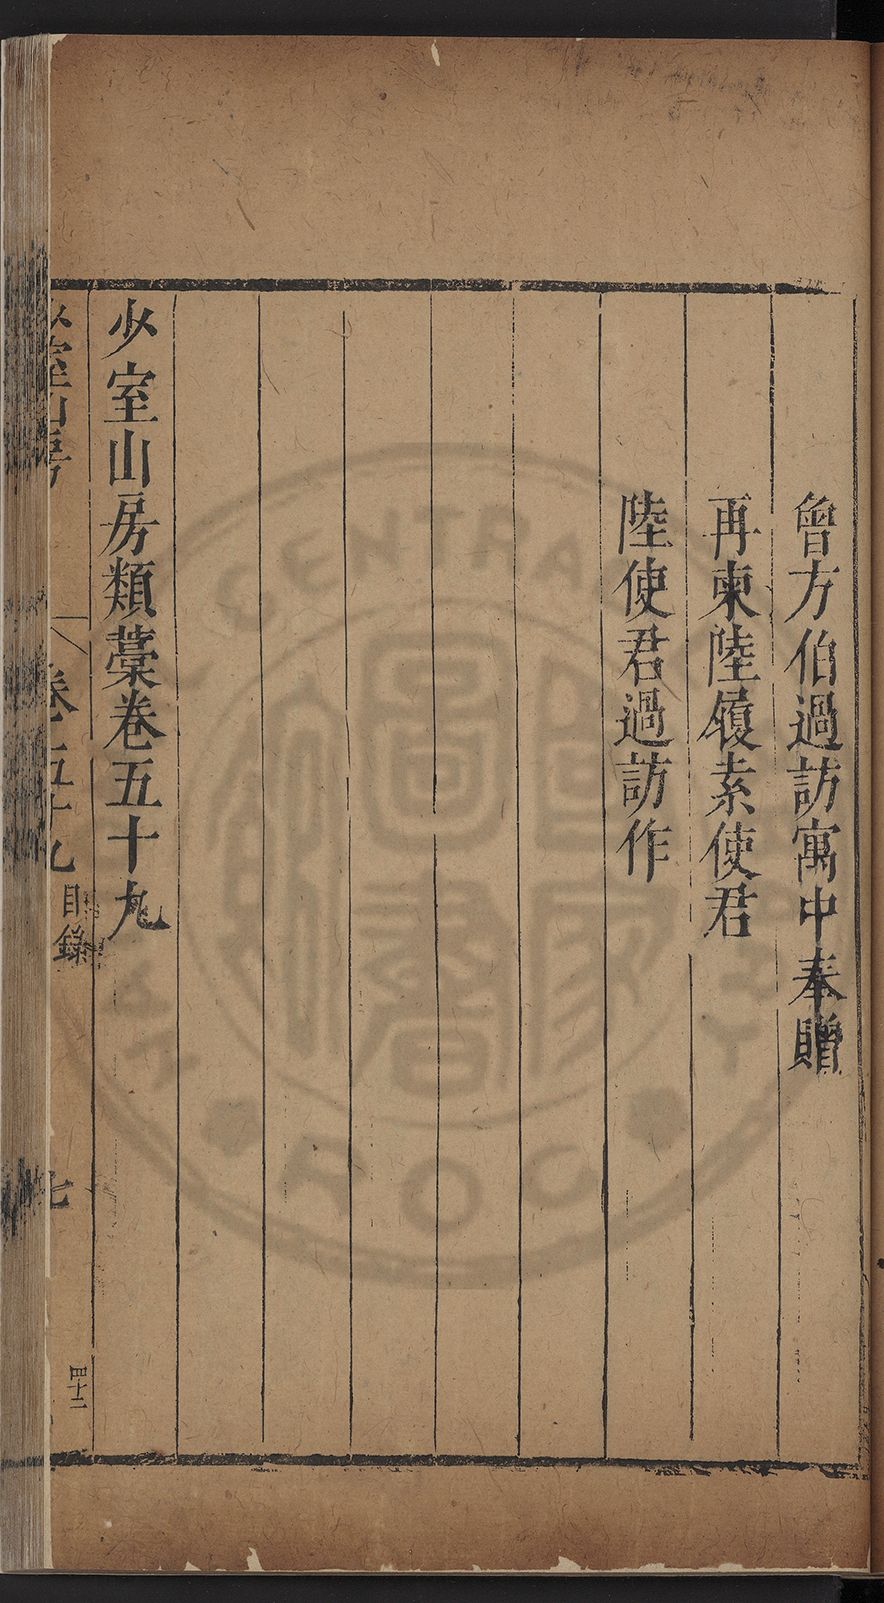 曾方伯過訪寓中奉贈
再柬陸履素使君
陸使君過訪作
少室山房類藁卷五十九
少室山房
卷之五十九
目錄
七
四十二
CENTRA
ROC
國家圖書館